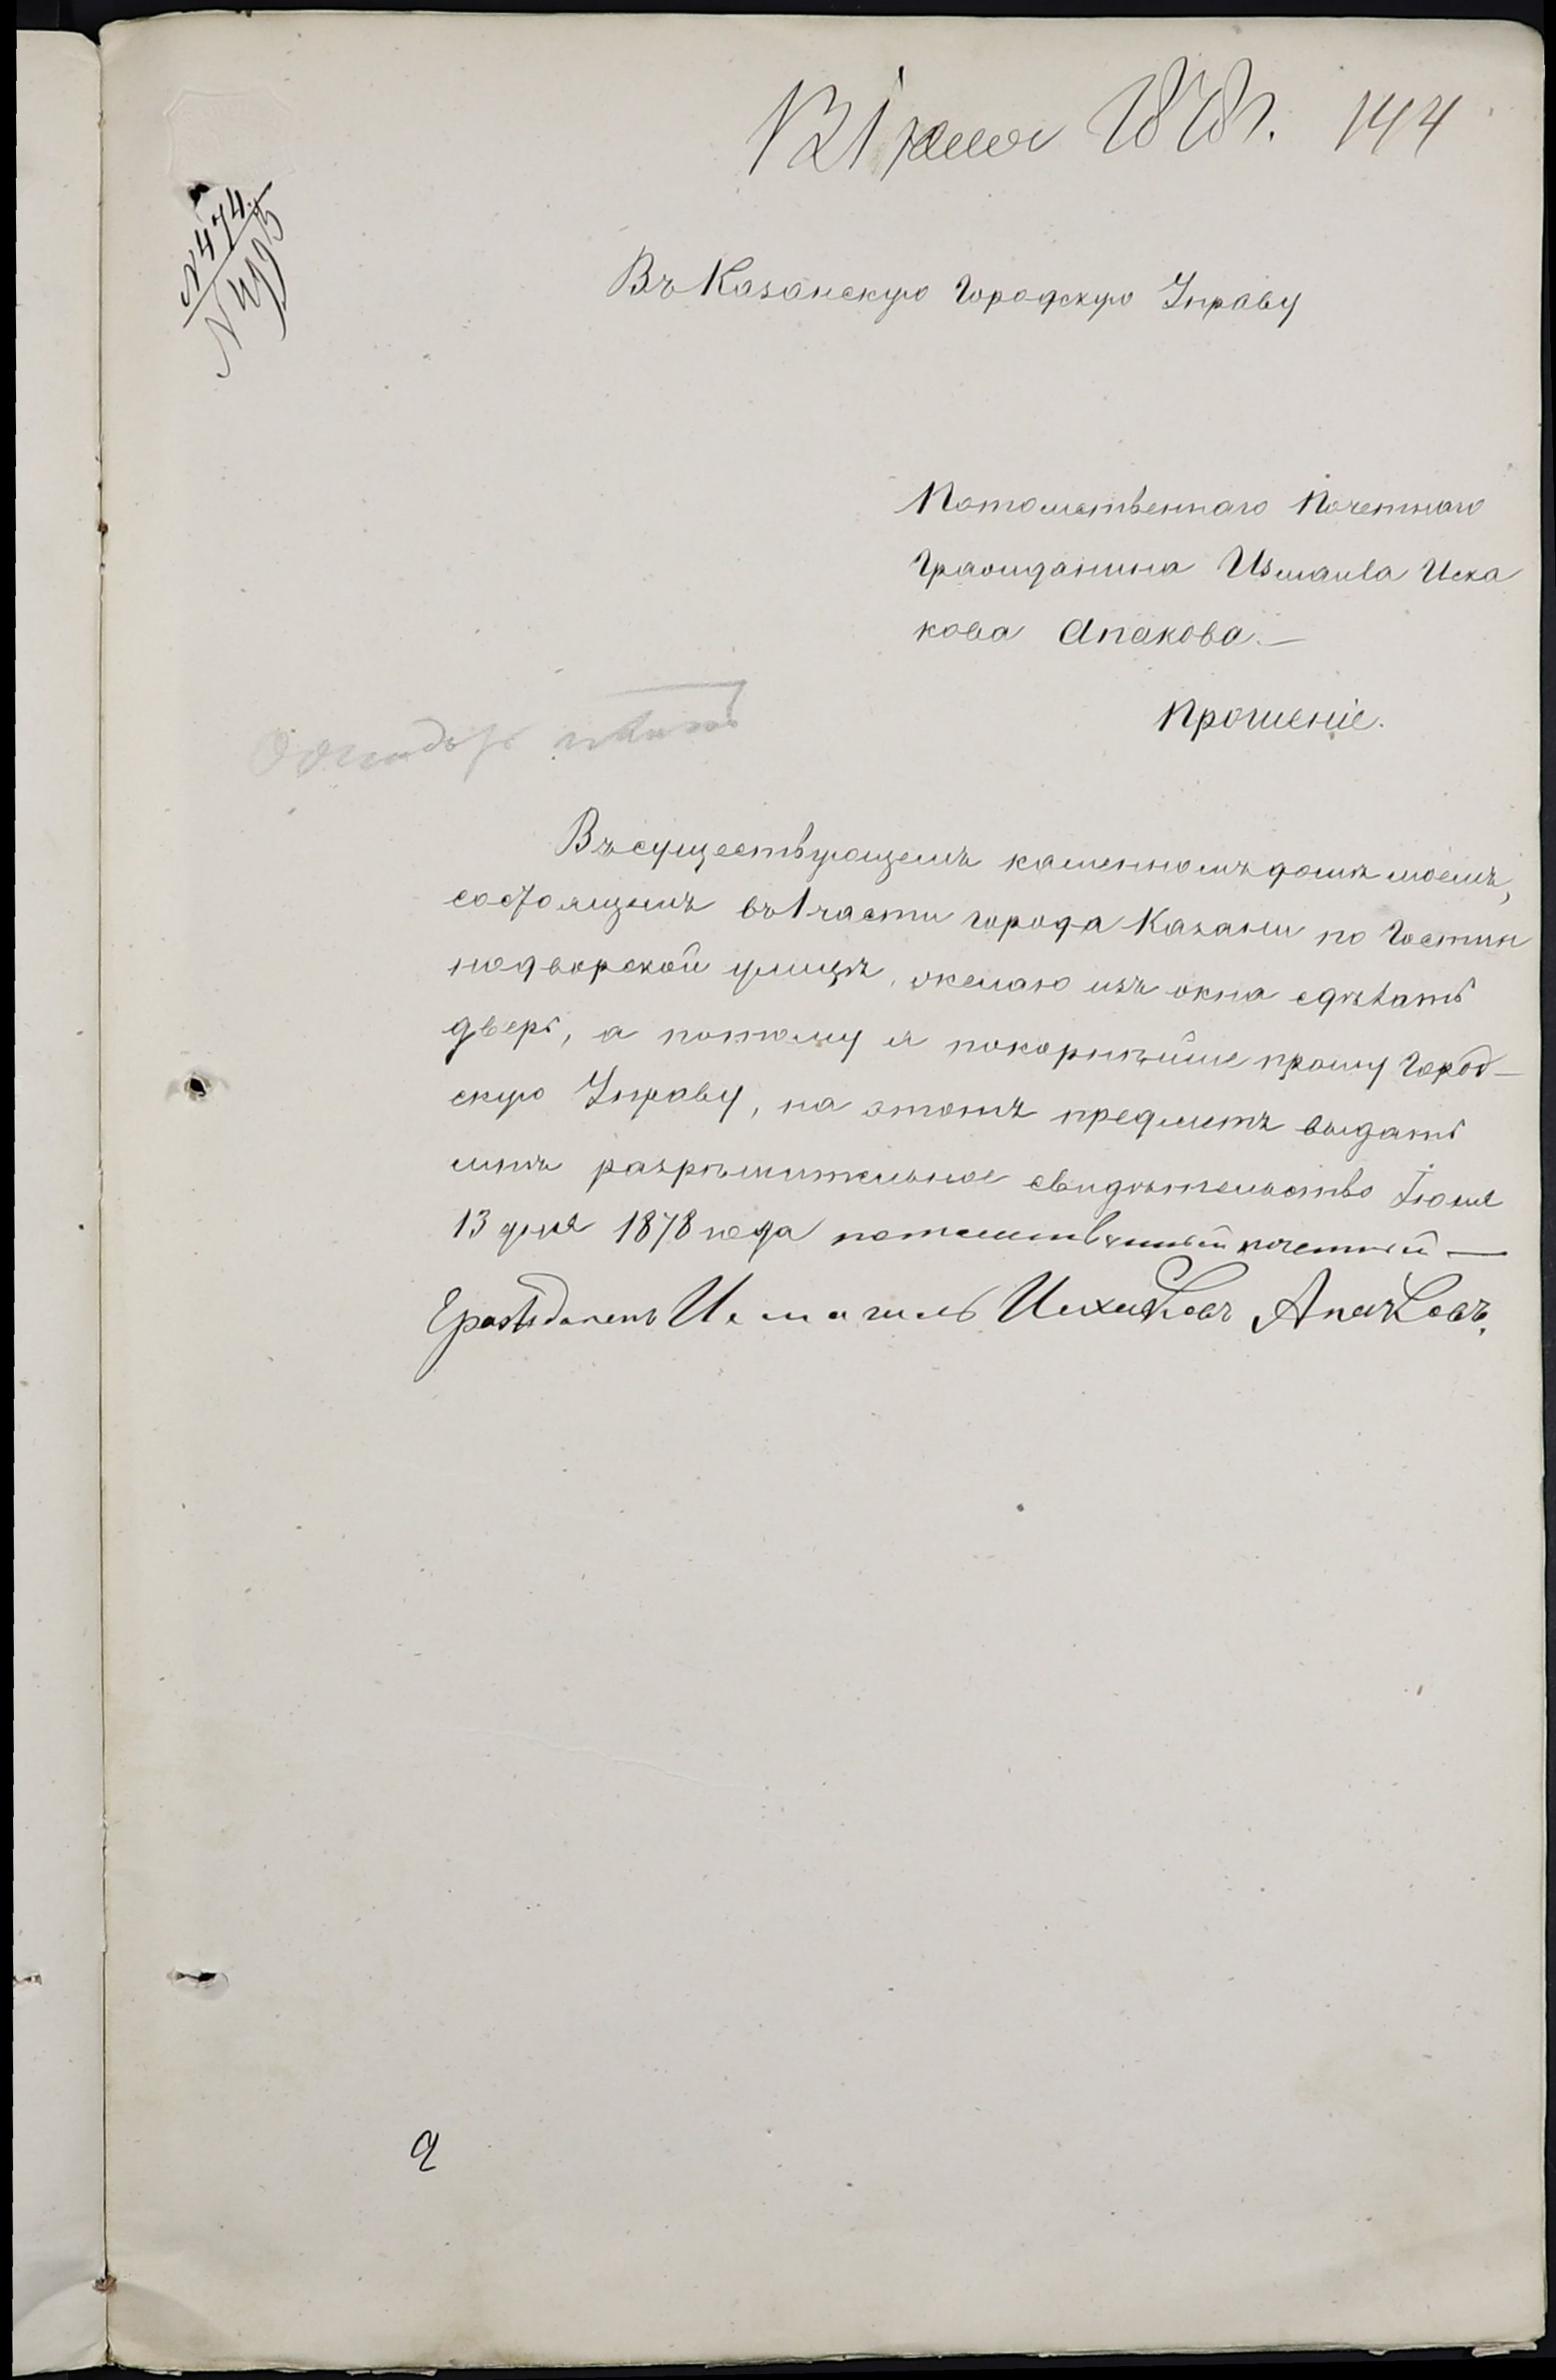 13 Іюля 1878 г. 144
№ 474.
№ 4995
Въ Казанскую Городскую Управу
Потомственнаго Почетнаго
Гражданина Измаила Исха
кова Апакова.—
Прошеніе.
Въ существующемъ каменномъ домѣ моемъ,
состоящемъ въ 1 части города Казани по Гостин
нодворской улицѣ, желаю изъ окна сдѣлать
дверь, а потому я покорнѣйше прошу Город-
скую Управу, на этотъ предметъ выдать
мнѣ разрѣшительное свидѣтельство Іюля
13 дня 1878 года потомственный почетный —
Гражданенъ Исмагилъ Исхаковъ Апаковъ.
2